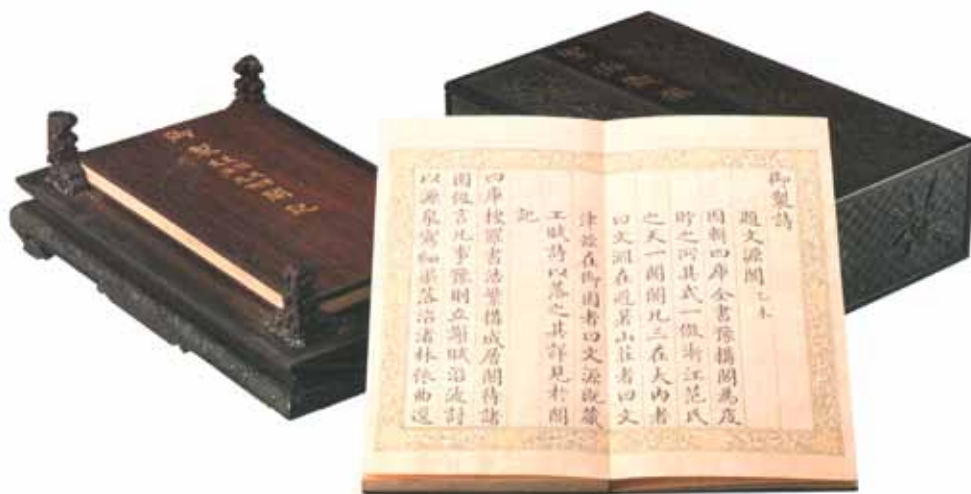 御製詩
題文源閣 乙未
因輯四庫全書豫搆閣為庋
貯之所其式一倣浙江范氏
之天一閣凡三在大內者
曰文淵在避暑山莊者曰文
津茲在御園者曰文源既蕆
工賦詩以落之其詳見於閣
記
四庫搜羅書浩繁搆成層閣待諸
園緬言凡事豫則立謝賦沿波討
以源泉寫細渠落沼渚林依曲